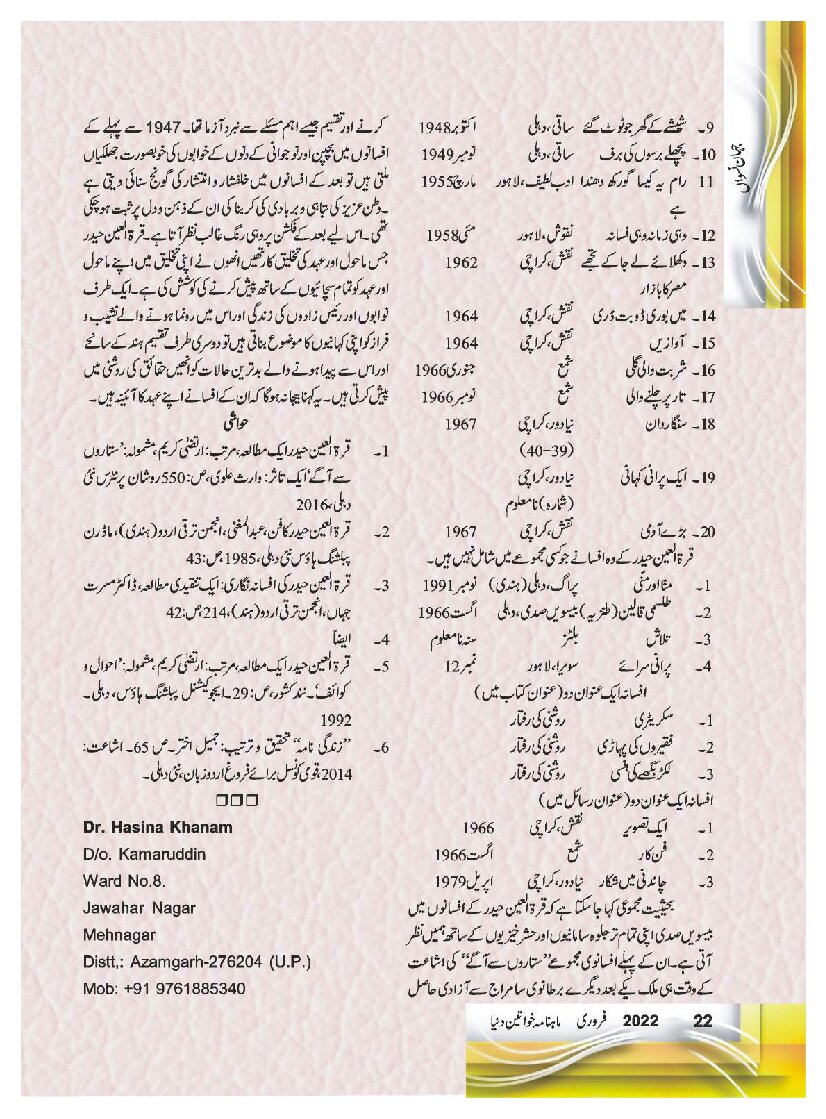 جہان نسواں
9۔ شیشے کے گھر جو ٹوٹ گئے ساقی، دہلی اکتوبر 1948
10۔ پچھلے برسوں کی برف ساقی، دہلی نومبر 1949
11 رام یہ کیسا گورکھ دھندا ادب لطیف، لاہور مارچ 1955
ہے
12۔ وہی زمانہ وہی فسانہ نقوش، لاہور مئی 1958
13۔ دکھلائے لے جا کے تجھے نقش، کراچی 1962
مصر کا بازار
14۔ میں بوری ڈوبت ڈری نقش، کراچی 1964
15۔ آوازیں نقش، کراچی 1964
16۔ شربت والی گلی شمع جنوری 1966
17۔ تار پر چلنے والی شمع نومبر 1966
18۔ سنگاردان نیا دور، کراچی 1967
(39-40)
19۔ ایک پرانی کہانی نیا دور، کراچی
(شمارہ) نامعلوم
20۔ بڑے آدمی نقش، کراچی 1967
قرۃ العین حیدر کے وہ افسانے جو کسی مجموعے میں شامل نہیں ہیں۔
1۔ مٹا اور مٹی پراگ، دہلی (ہندی) نومبر 1991
2۔ طلسمی قالین (طنزیہ) بیسویں صدی، دہلی اگست 1966
3۔ تلاش بلٹز سنہ نامعلوم
4۔ پرانی سرائے سویرا، لاہور نمبر 12
افسانہ ایک عنوان دو (عنوان کتاب میں)
1۔ سکریٹری روشنی کی رفتار
2۔ فقیروں کی پہاڑی روشنی کی رفتار
3۔ لکڑبگھے کی ہنسی روشنی کی رفتار
افسانہ ایک عنوان دو (عنوان رسائل میں)
1۔ ایک تصویر نقش، کراچی 1966
2۔ فن کار شمع اگست 1966
3۔ چاندنی میں شکار نیا دور، کراچی اپریل 1979
بحیثیت مجموعی کہا جا سکتا ہے کہ قرۃ العین حیدر کے افسانوں میں
بیسویں صدی اپنی تمام تر جلوہ سامانیوں اور حشر خیزیوں کے ساتھ ہمیں نظر
آتی ہے۔ ان کے پہلے افسانوی مجموعے ”ستاروں سے آگے“ کی اشاعت
کے وقت ہی ملک یکے بعد دیگرے برطانوی سامراج سے آزادی حاصل
کرنے اور تقسیم جیسے اہم مسئلے سے نبرد آزما تھا۔ 1947 سے پہلے کے
افسانوں میں بچپن اور نوجوانی کے دنوں کے خوابوں کی خوبصورت جھلکیاں
ملتی ہیں تو بعد کے افسانوں میں خلفشار و انتشار کی گونج سنائی دیتی ہے
۔ وطن عزیز کی تباہی و بربادی کی کربنا کی ان کے ذہن و دل پر ثبت ہو چکی
تھی۔ اس لیے بعد کے فکشن پر وہی رنگ غالب نظر آتا ہے۔ قرۃ العین حیدر
جس ماحول اور عہد کی تخلیق کار تھیں انھوں نے اپنی تخلیق میں اپنے ماحول
اور عہد کو تمام سچائیوں کے ساتھ پیش کرنے کی کوشش کی ہے۔ ایک طرف
نوابوں اور رئیس زادوں کی زندگی اور اس میں رونما ہونے والے نشیب و
فراز کو اپنی کہانیوں کا موضوع بناتی ہیں تو دوسری طرف تقسیم ہند کے سانحے
اور اس سے پیدا ہونے والے بدترین حالات کو انھیں حقائق کی روشنی میں
پیش کرتی ہیں۔ یہ کہنا بیجا نہ ہوگا کہ ان کے افسانے اپنے عہد کا آئینہ ہیں۔
حواشی
1۔ قرۃ العین حیدر ایک مطالعہ، مرتب: ارتضیٰ کریم، مشمولہ: ’ستاروں
سے آگے‘ ایک تاثر: وارث علوی، ص: 550 روشان پرنٹرس نئی
دہلی، 2016
2۔ قرۃ العین حیدر کا فن، عبدالمغنی، انجمن ترقی اردو (ہندی)، ماڈرن
پبلشنگ ہاؤس نئی دہلی، 1985، ص: 43
3۔ قرۃ العین حیدر کی افسانہ نگاری: ایک تنقیدی مطالعہ، ڈاکٹر مسرت
جہاں، انجمن ترقی اردو (ہند)، 214، ص: 42
4۔ ایضاً
5۔ قرۃ العین حیدر ایک مطالعہ، مرتب: ارتضیٰ کریم، مشمولہ: ’احوال و
کوائف‘۔ نند کشور، ص: 29۔ ایجوکیشنل پبلشنگ ہاؤس، دہلی۔
1992
6۔ ”زندگی نامہ“ تحقیق و ترتیب: جمیل اختر۔ ص 65۔ اشاعت:
2014، قومی کونسل برائے فروغ اردو زبان، نئی دہلی۔
□□□
Dr. Hasina Khanam
D/o. Kamaruddin
Ward No.8.
Jawahar Nagar
Mehnagar
Distt,: Azamgarh-276204 (U.P.)
Mob: +91 9761885340
22 فروری 2022 ماہنامہ خواتین دنیا